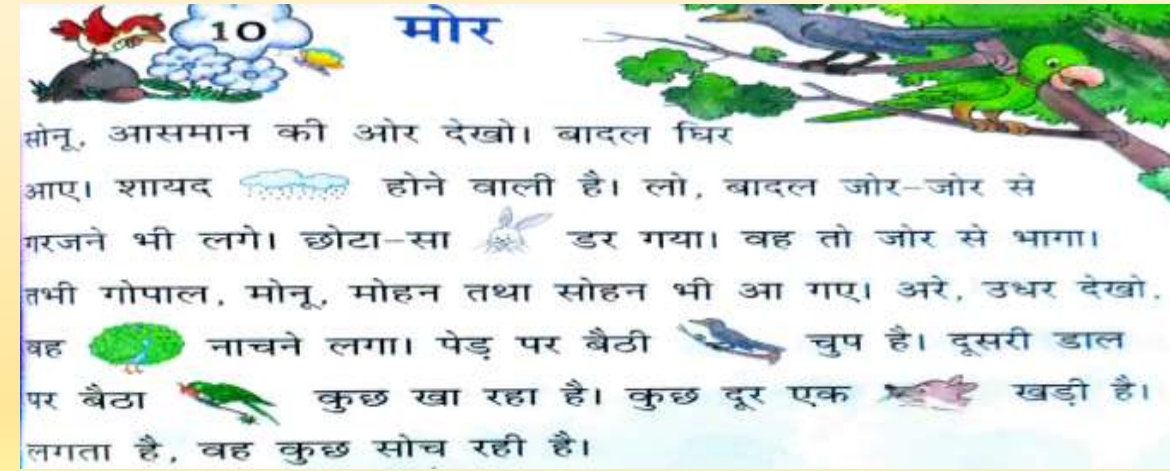 10
मोर
सोनू, आसमान की ओर देखो। बादल घिर
आए। शायद होने वाली है। लो, बादल जोर-जोर से
गरजने भी लगे। छोटा-सा डर गया। वह तो जोर से भागा।
तभी गोपाल, मोनू, मोहन तथा सोहन भी आ गए। अरे, उधर देखो,
वह नाचने लगा। पेड़ पर बैठी चुप है। दूसरी डाल
पर बैठा कुछ खा रहा है। कुछ दूर एक खड़ी है।
लगता है, वह कुछ सोच रही है।